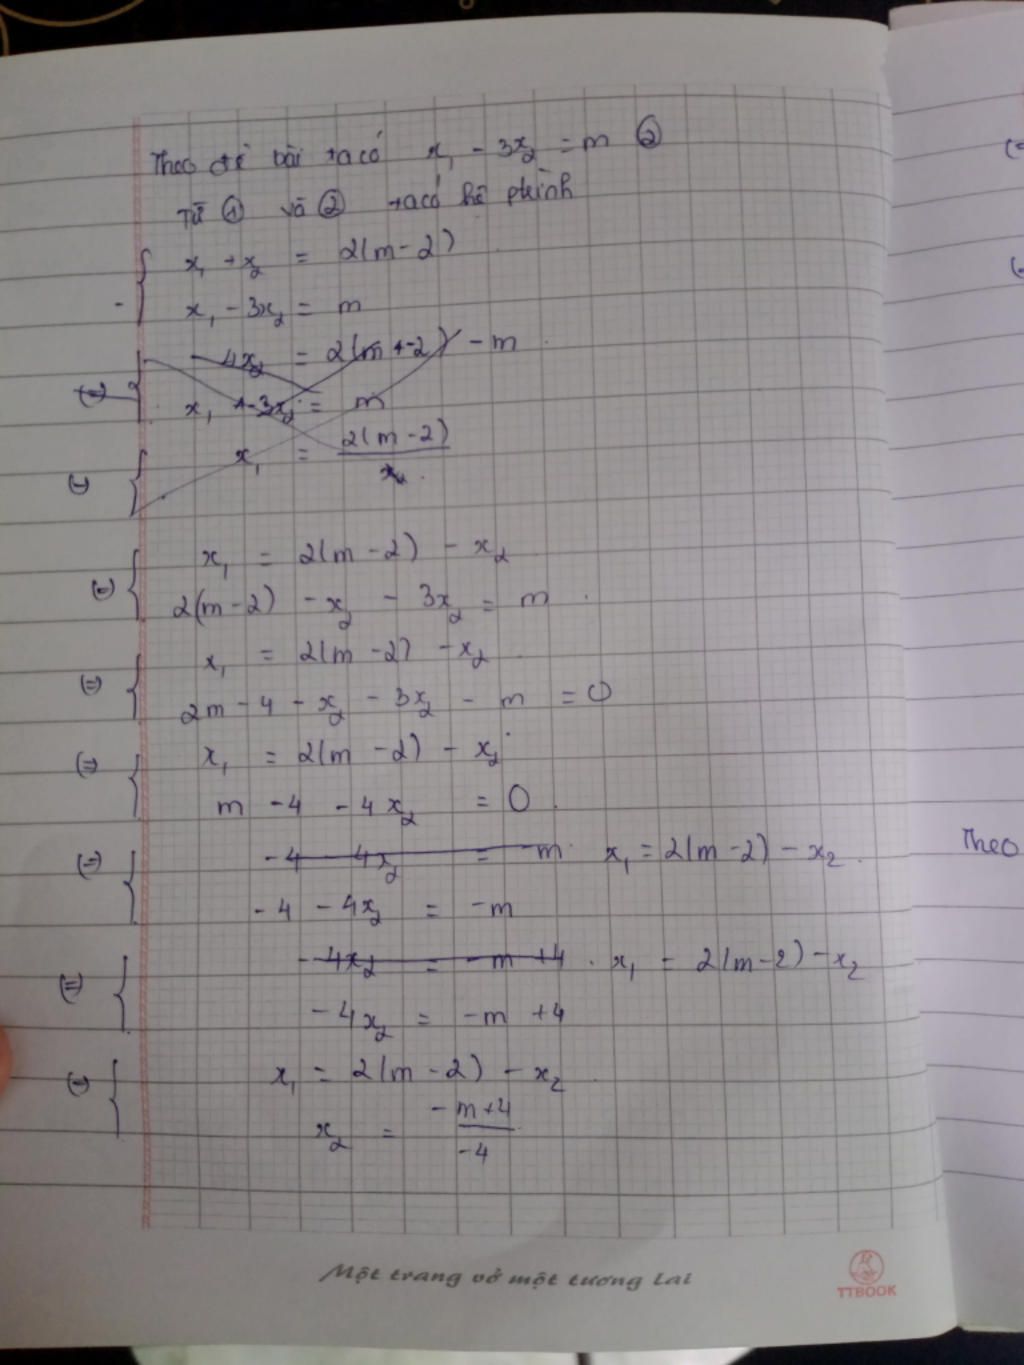 Theo đề bài ta có x₁ - 3x₂ = m ②
Từ ① và ② ta có hệ phình
x₁ + x₂ = 2(m-2)
x₁ - 3x₂ = m
4x₂ = 2(m+-2) - m
x₁ +-3x₂ = m
x₁ = 2(m-2)/x₂
(=) x₁ = 2(m-2) - x₂
2(m-2) - x₂ - 3x₂ = m
(=) x₁ = 2(m-2) - x₂
2m - 4 - x₂ - 3x₂ - m = 0
(=) x₁ = 2(m-2) - x₂
m - 4 - 4x₂ = 0
(=) -4 - 4x₂ = -m x₁ = 2(m-2) - x₂
-4 - 4x₂ = -m
(=) -4x₂ = -m+4 x₁ = 2(m-2) - x₂
-4x₂ = -m +4
(=) x₁ = 2(m-2) - x₂
x₂ = -m+4/-4
Theo
Một trang vở một tương lai
TTBOOK